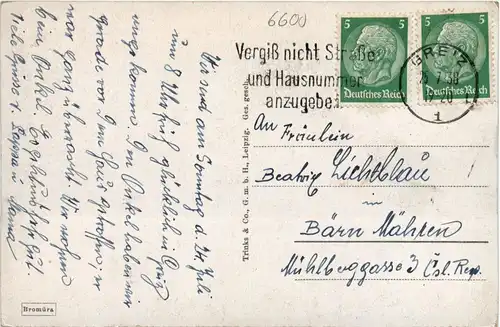 6600
Vergiß nicht Straße
und Hausnummer
anzugeben
5 5
Deutsches Reich
5 5
Deutsches Reich
GREIZ
1
An Fräulein
Beatrix Lichtblau
in
Bärn Mähren
Mühlberggasse 3 Čsl. Rep.
Trinks & Co., G. m. b. H., Leipzig. Ges. gesch.
Wir sind am Sonntag d. 24. Juli
um 8 Uhr früh glücklich in Greiz
angekommen. Den Onkel haben wir
grade vor dem Haus getroffen, er
war ganz überrascht. Wir wohnen
beim Onkel. Es geht uns sehr gut.
Viele Grüsse
Mama
Bromüra